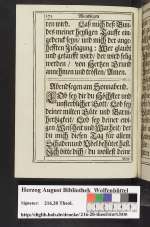 172 Abendsegen
ten wird. Laß mich des Bun-
des meiner heyligen Tauffe ein-
gedenck seyn/ und mich der ange-
hefften Zusagung: Wer glaubt
und getaufft wird/ der wird selig
werden/ von Hertzen Grund
annehmen und trösten/ Amen.
Abendsegen am Sonnabend.
Gott sey dir du Schöpffer und
unsterblicher Gott/ Lob sey
deiner milten Güte und Barm-
hertzigkeit/ Lob sey deiner ewi-
gen Weisheit und Warheit/ der
du mich diesen Tag für allem
Schaden und Übel behütet hast.
Ich bitte dich/ du wollest deine
Herzog August Bibliothek Wolfenbüttel
Signatur: 216.28 Theol.
http://diglib.hab.de/drucke/216-28-theol/start.htm